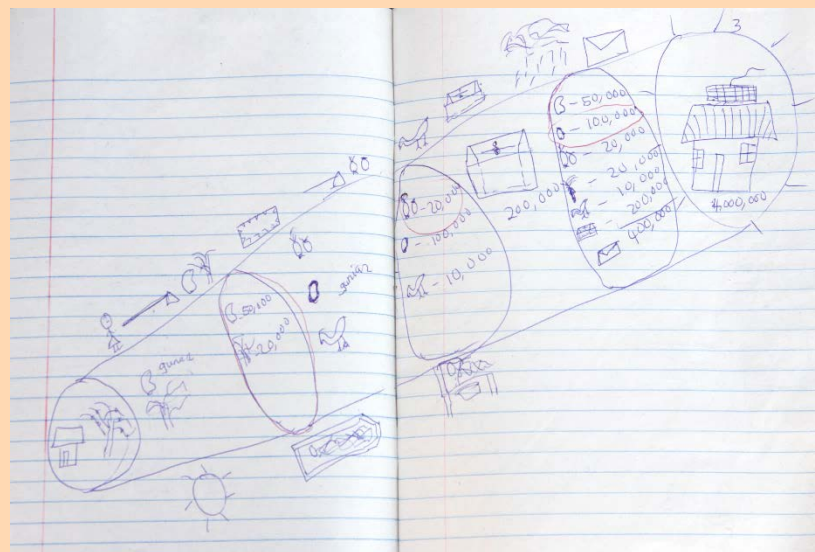 gunia2
50,000
20,000
gunia2
20,000
100,000
10,000
200,000
3
50,000
100,000
20,000
20,000
10,000
200,000
400,000